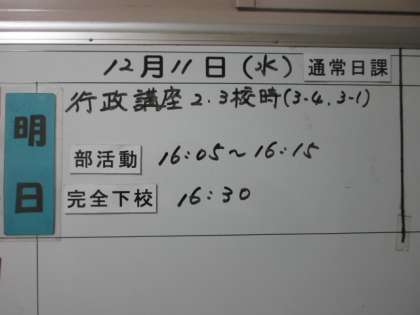 12月11日(水) 通常日課
明日
行政講座 2.3校時(3-4.3-1)
部活動 16:05～16:15
完全下校 16:30